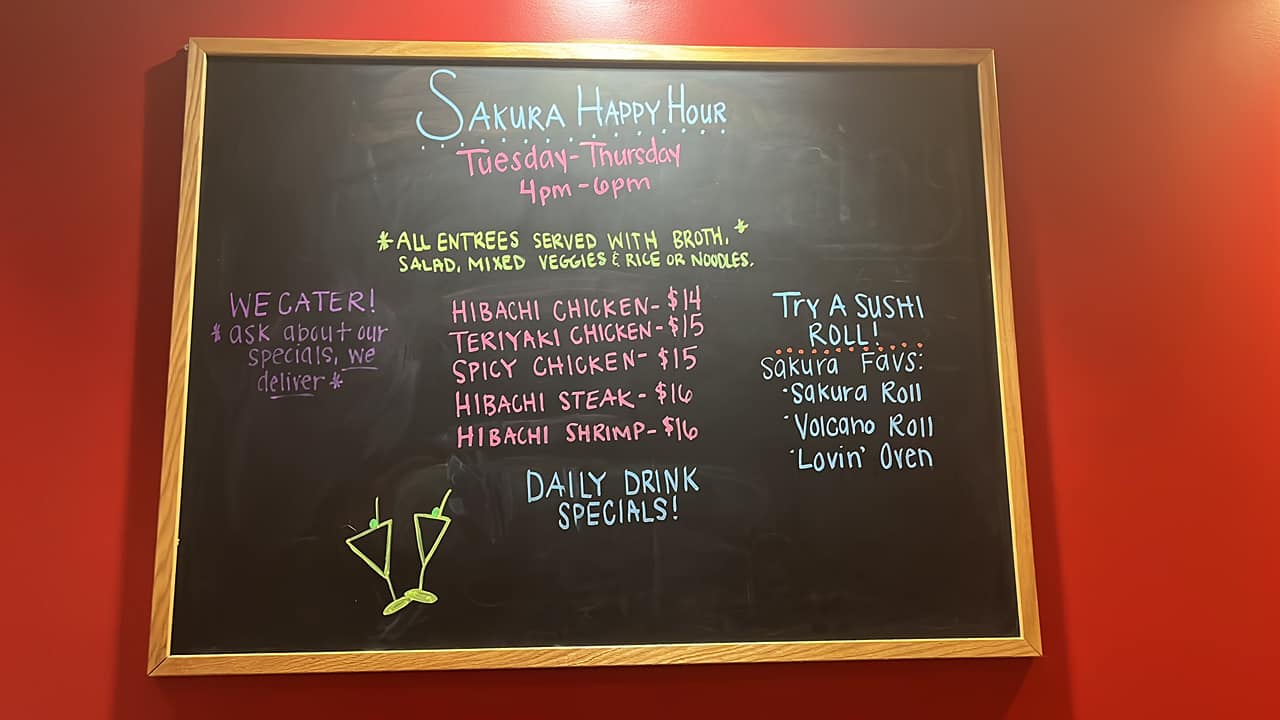 SAKURA HAPPY HOUR
Tuesday-Thursday
4pm-6pm
*ALL ENTREES SERVED WITH BROTH,*
SALAD, MIXED VEGGIES & RICE OR NOODLES.
WE CATER!
*ask about our
specials, we
deliver*
HIBACHI CHICKEN-$14
TERIYAKI CHICKEN-$15
SPICY CHICKEN-$15
HIBACHI STEAK-$16
HIBACHI SHRIMP-$16
DAILY DRINK
SPECIALS!
Try A SUSHI
ROLL!
Sakura Favs:
·Sakura Roll
·Volcano Roll
·Lovin' Oven